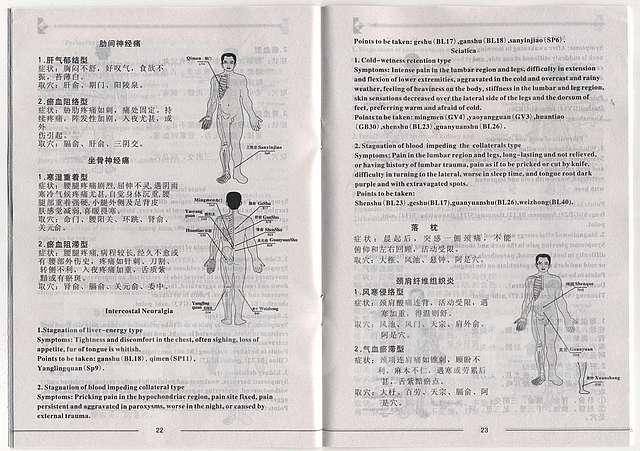 肋间神经痛
1.肝气郁结型
症状：胸闷不舒，好叹气，食欲不
振，苔薄白。
取穴：肝俞、期门、阳陵泉。
2.瘀血阻络型
症状：胁肋疼痛如刺，痛处固定，持
续疼痛，阵发性加剧，入夜尤甚，或
外
伤引起。
取穴：膈俞、肝俞、三阴交。
坐骨神经痛
1.寒湿重着型
症状：腰腿疼痛剧烈,屈伸不灵,遇阴雨
寒冷气候疼痛尤甚,自觉身体沉重,腰
腿部重着强硬,小腿外侧及足背皮
肤感觉减弱,喜暖畏寒。
取穴：命门、腰阳关、环跳、肾俞、
关元俞。
2.瘀血阻滞型
症状：腰腿疼痛,病程较长,经久不愈或
有腰部外伤史，疼痛如针刺、刀割，
转侧不利，入夜疼痛加重，舌质紫
黯或有瘀斑。
取穴：肾俞、膈俞、关元俞、委中。
Qimen
Sanyinjiao
Mingmen
Yaoyang
quan
Huantiao
GeShu
GanShu
ShenShu
GuanyuanShu
Yangling
quan
Weizhong
Intercostal Neuralgia
1.Stagnation of liver-energy type
Symptoms: Tightness and discomfort in the chest, often sighing, loss of
appetite, fur of tongue is whitish.
Points to be taken: ganshu (BL18) ,qimen (SP11),
Yanglingquan (Sp9).
2. Stagnation of blood impeding collateral type
Symptoms: Pricking pain in the hypochondriac region, pain site fixed, pain
persistent and aggravated in paroxysms, worse in the night, or caused by
external trauma.
22
Points to be taken: geshu (BL17) ,ganshu (BL18) ,sanyinjiao (SP6).
Sciatica
1. Cold-wetness retention type
Symptoms: Intense pain in the lumbar region and legs, difficulty in extension
and flexion of lower extremities, aggravated in the cold and overcast and rainy
weather, feeling of heaviness on the body, stiffness in the lumbar and leg region,
skin sensations decreased over the lateral side of the legs and the dorsum of
feet, preferring warm and afraid of cold.
Points to be taken: mingmen (GV4) ,yaoyangguan (GV3) ,huantiao
(GB30) ,shenshu (BL23) ,guanyuanshu (BL26).
2. Stagnation of blood impeding the collaterals type
Symptoms: Pain in the lumbar region and legs, long-lasting and not relieved,
or having history of lumbar trauma, pain as if to be pricked or cut by knife,
difficulty in turning to the lateral, worse in sleep time, and tongue root dark
purple and with extravagated spots.
Points to be taken:
Shenshu (BL23) ,geshu (BL17) ,guanyuanshu (BL26) ,weizhong (BL40).
落 枕
症状：晨起后，突感一侧颈痛，不能
俯仰和左右回顾，活动受限。
取穴：大椎、风池、悬钟、阿是穴。
颈肩纤维组织炎
1.风寒侵络型
症状：颈肩酸痛连背，活动受限，遇
寒加重，得温则舒。
取穴：风池、风门、天宗、肩外俞、
阿是穴。
2.气血瘀滞型
症状：颈项连肩痛如锥刺，顾盼不
利，麻木不仁，遇寒或劳累后
甚，舌紫黯瘀点。
取穴：大杼、百劳、天宗、膈俞、阿
是穴。
Shenque
Guanyuan
Xuanzhong
23